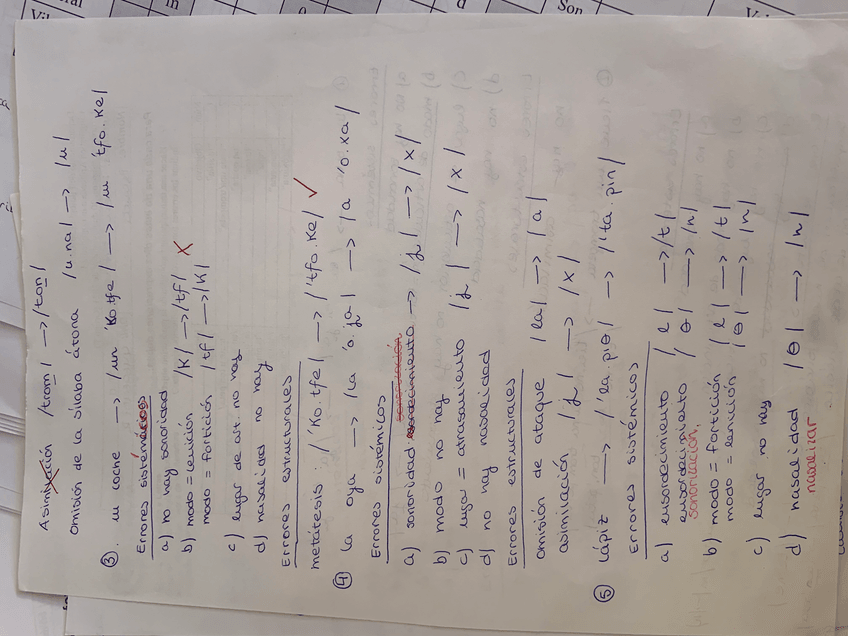 Asimilación /tɾom/ → /ton/
Omisión de la sílaba átona /u.na/ → /u/
③. un coche → /un 'ko.tʃe/ → /un 'tʃo.ke/
Errores sistémicos
a) no hay sonoridad
b) modo = lenición /k/ → /tʃ/ X
modo = fortición /tʃ/ → /k/
c) lugar de art. no hay
d) nasalidad no hay
Errores estructurales
metátesis: /'ko.tʃe/ → /'tʃo.ke/ ✓
④ la oya → /la 'o.ʝa/ → /a 'o.xa/
Errores sistémicos
sonorización
a) sonoridad ensordecimiento → /ʝ/ → /x/
b) modo no hay
c) lugar = atrasamiento /ʝ/ → /x/
d) no hay nasalidad
Errores estructurales
omisión de ataque /la/ → /a/
asimilación /ʝ/ → /x/
⑤ Lápiz → /'la.piθ/ → /'ta.pin/
Errores sistémicos
a) ensordecimiento /l/ → /t/
ensordecimiento /θ/ → /n/
sonorización
b) modo = fortición /l/ → /t/
modo = lenición /θ/ → /n/
c) lugar no hay
d) nasalidad /θ/ → /n/
nasalizar